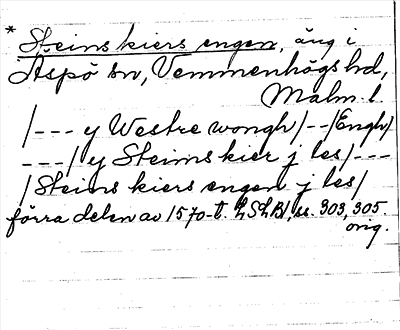 * Steinskiers engen, äng i
Äspö sn, Vemmenhögs hd,
Malm. l.
/--- y Westre wongh/--/Engh/
---/ y Steimskier j les/---
/Steinskiers engen j les/
förra delen av 1570-t. LSLB1, ss. 303, 305.
orig.